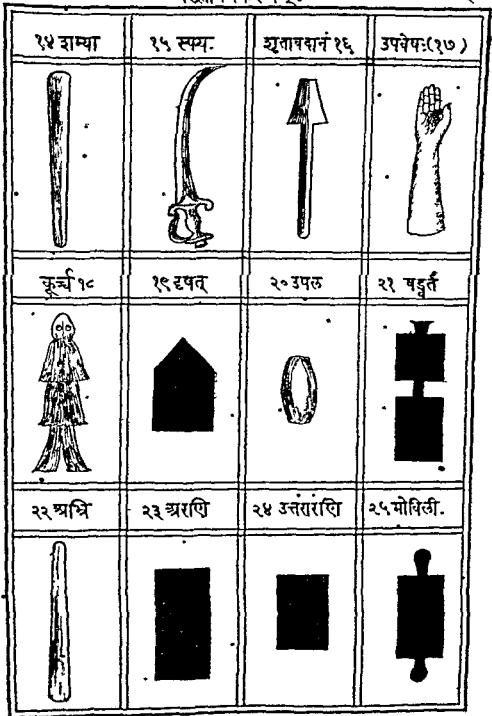 १४ शम्या
१५ स्फ्य.
शृतावदानं १६
उपवेषः(१७)
कूर्च्च १८
१९ दृषत्
२० उपल
२१ षडूर्त
२२ अभ्रि
२३ अरणि
२४ उत्तरारणि
२५ मोविली.